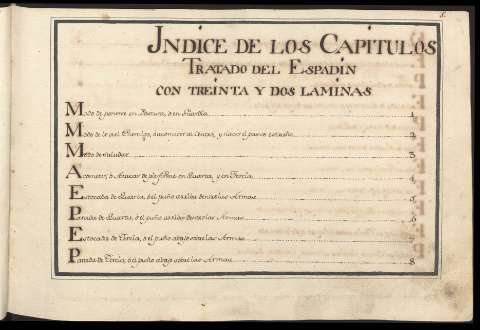 JNDICE DE LOS CAPITULOS
TRATADO DEL ESPADIN
CON TREINTA Y DOS LAMINAS
Modo de ponerse en Postura, o en Guardia 1
Modo de ir al Enemigo, 2
Modo de saludar 3
Acometer, o Atacar de pie firme en Quarta, y en Tercia 4
Estocada de Quarta, o el puño arriba dentro las Armas 5
Parada de Quarta, o el puño arriba dentro las Armas 6
Estocada de Tercia, o el puño abajo sobre las Armas 7
Parada de Tercia, o el puño abajo sobre las Armas 8